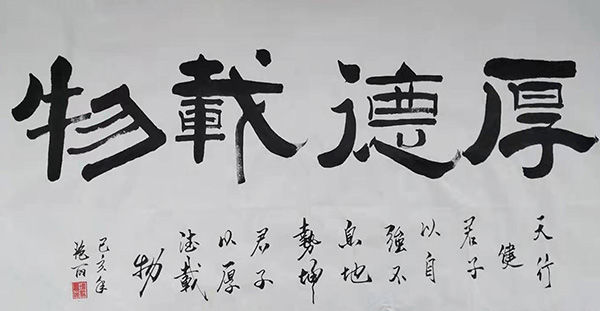 厚德載物
天行
健
君子
以自
強不
息地
勢坤
君子
以厚
德載
物
己亥年